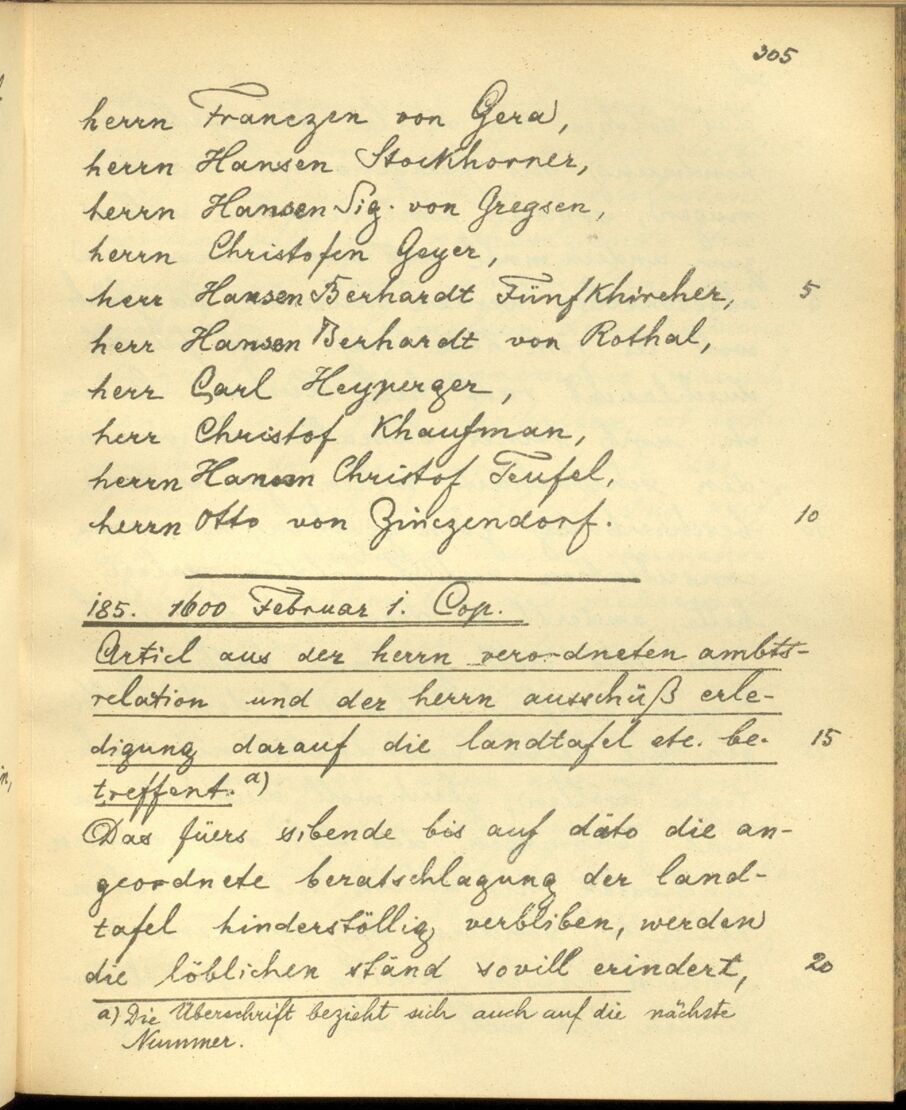 305
herrn Franczen von Gera,
herrn Hansen Stockhorner,
herrn Hansen Sig. von Gregsen,
herrn Christofen Geyer,
herr Hansen Berhardt Fünfkhircher, 5
herr Hansen Berhardt von Rothal,
herr Carl Heyperger,
herr Christof Khaufman,
herrn Hansen Christof Teufel,
herrn Otto von Zinczendorf. 10
185. 1600 Februar 1. Cop.
Articl aus der herrn verordneten ambts-
relation und der herrn ausschüß erle-
digung darauf die landtafel etc. be- 15
treffent. a)
Das fürs sibende bis auf dato die an-
geordnete beratschlagung der land-
tafel hinderstöllig verbliben, werden
die löblichen ständ sovill erindert, 20
a) Die Überschrift bezieht sich auch auf die nächste
Nummer.